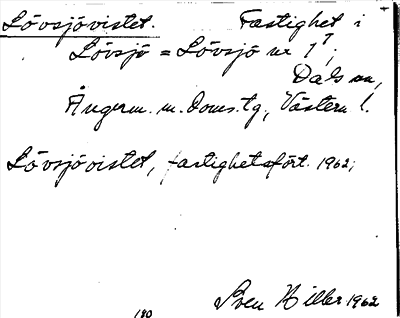 Lövsjövistet. Fastighet i
Lövsjö = Lövsjö nr 1⁷,
Dals sn,
Ångerm. m. doms.tg, Västern. l.
Lövsjövistet, fastighetsfört. 1962,
180 Sven Hiller 1962